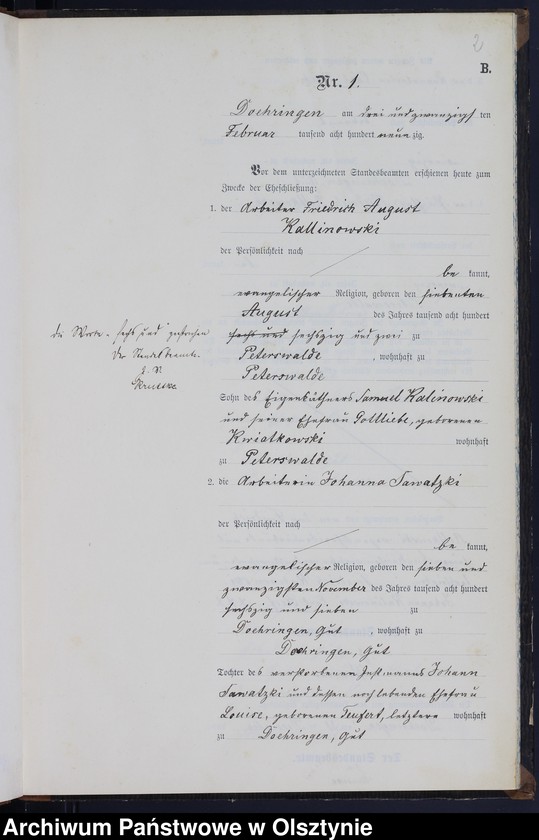 2
B.
Nr. 1.
Doehringen am drei und zwanzigsten
Februar tausend acht hundert neunzig.
Vor dem unterzeichneten Standesbeamten erschienen heute zum
Zwecke der Eheschließung:
1. der Arbeiter Friedrich August
Kallinowski
der Persönlichkeit nach
bekannt,
evangelischer Religion, geboren den siebenten
August des Jahres tausend acht hundert
sechs und sechszig und zwei zu
die Worte "sechs und"
Peterswalde, wohnhaft zu
der Standesbeamte.
Peterswalde
Sohn des Eigenkäthners Samuel Kalinowski
und seiner Ehefrau Gottliebe, geborenen
Kwiatkowski wohnhaft
zu Peterswalde
2. die Arbeiterin Johanna Sawatzki
der Persönlichkeit nach
bekannt,
evangelischer Religion, geboren den sieben und
zwanzigsten November des Jahres tausend acht hundert
sechszig und sieben zu
Doehringen, Gut, wohnhaft zu
Doehringen, Gut
Tochter des verstorbenen Instmanns Johann
Sawatzki und dessen noch lebenden Ehefrau
Louise, geborenen Teufert, letztere wohnhaft
zu Doehringen, Gut
Archiwum Państwowe w Olsztynie